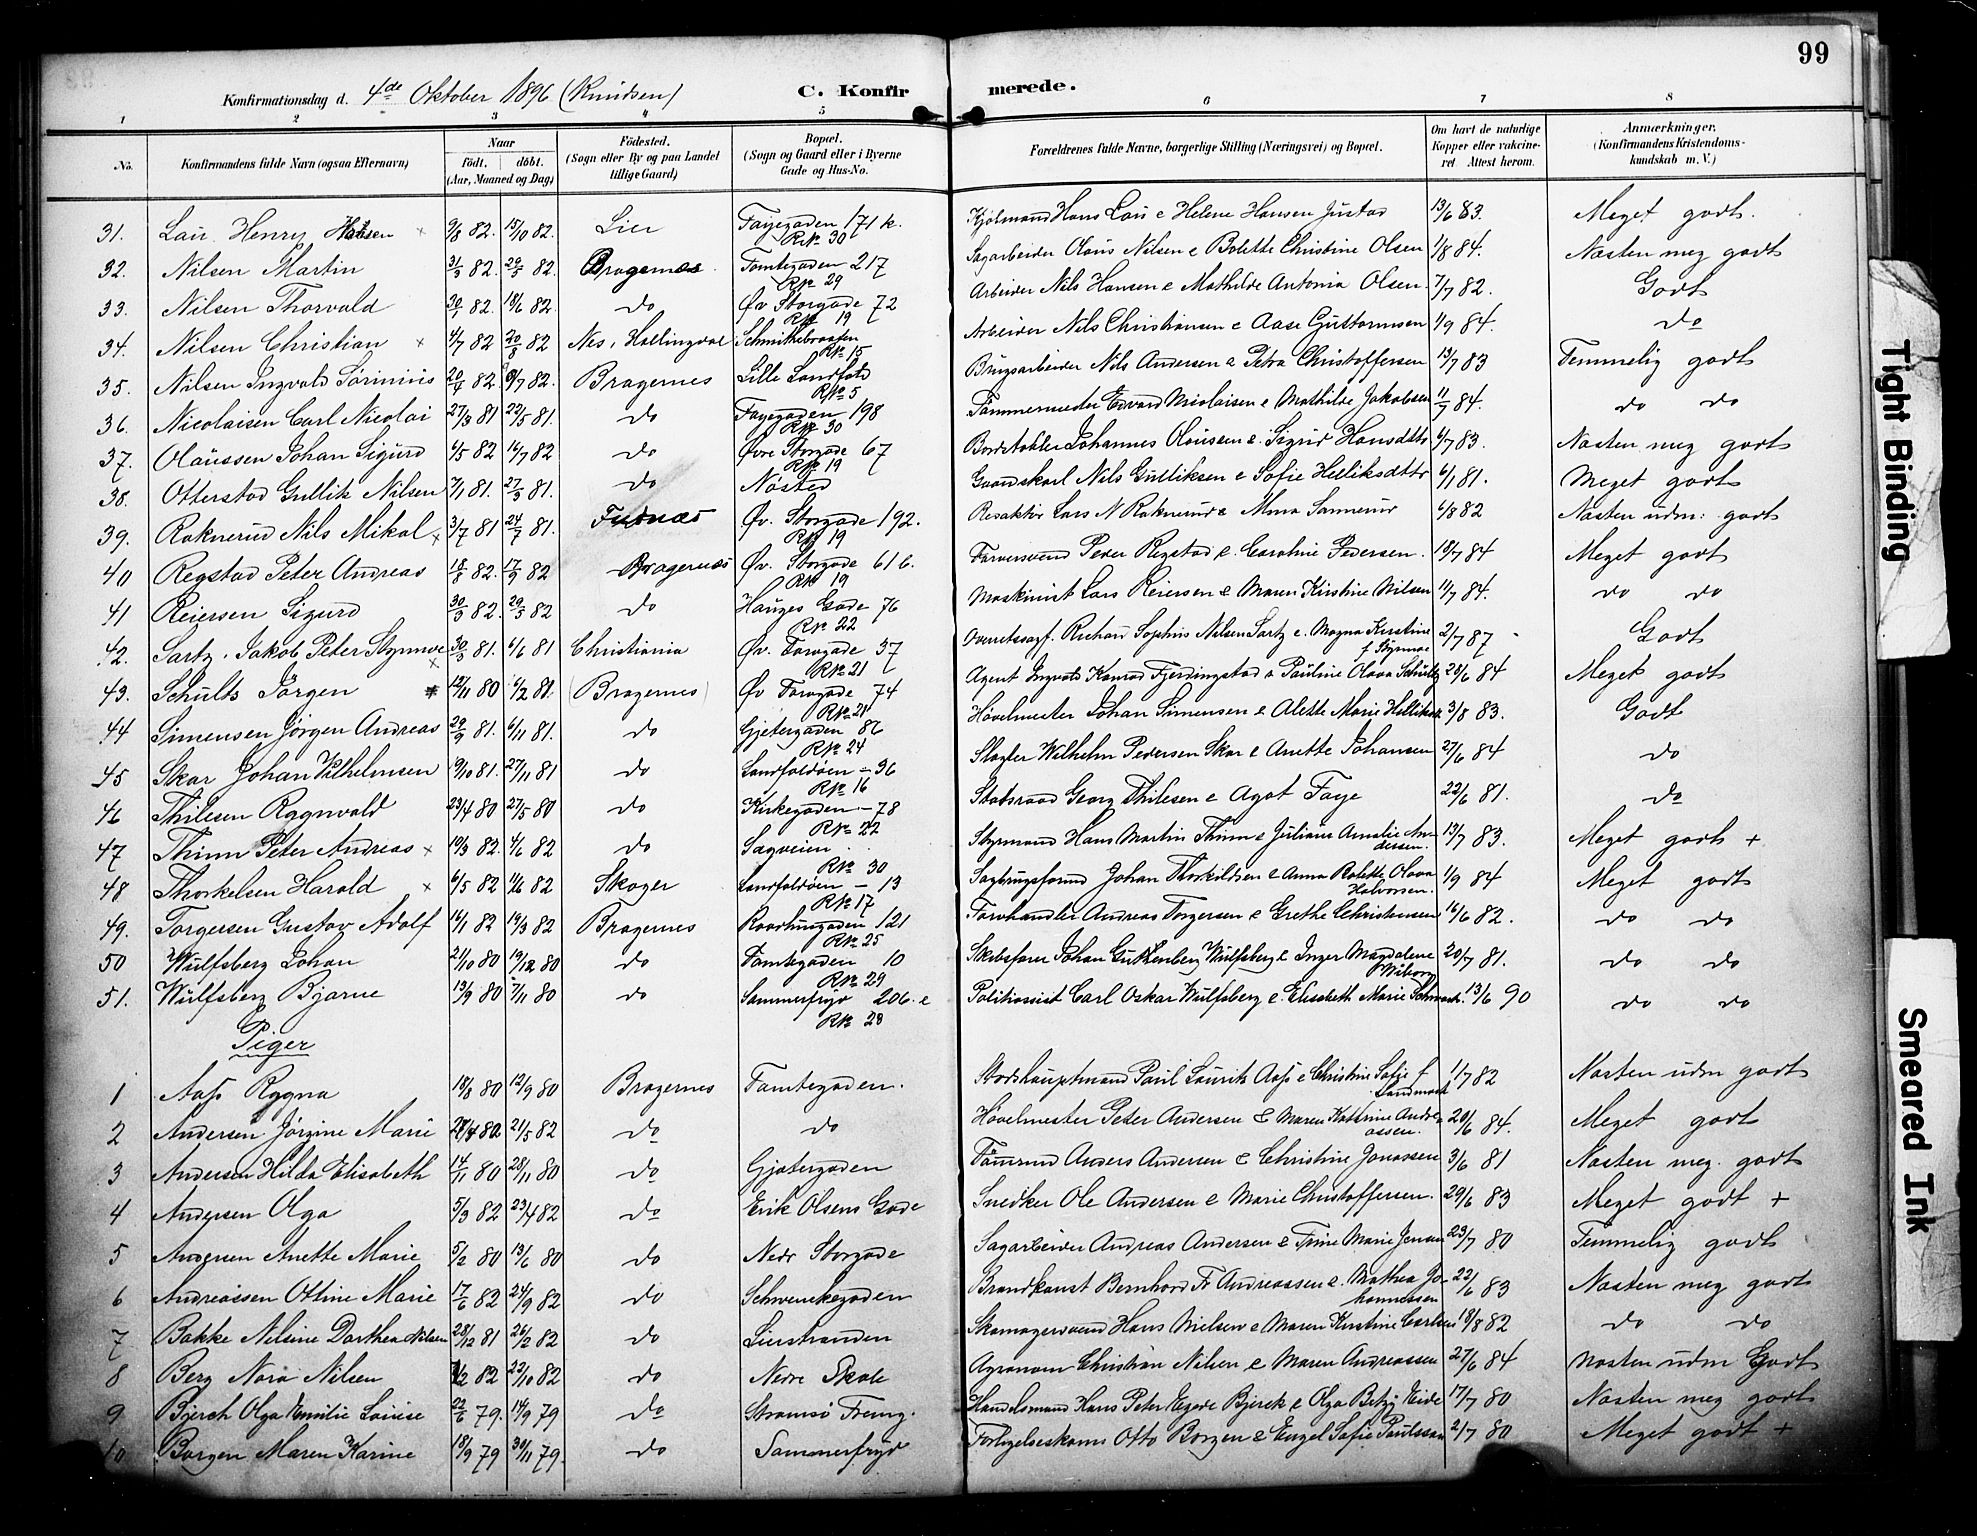 99
Konfirmationsdag d. 4de Oktober 1896 (Knudsen) C. Konfirmerede.
1 2 3 4 5 6 7 8
No. Konfirmandens fulde Navn (ogsaa Efternavn) Naar født. døbt. (Aar, Maaned og Dag) Fødested. (Sogn eller By og paa Landet tillige Gaard) Bopæl. (Sogn og Gaard eller i Byerne Gade og Hus-No. Forældrenes fulde Navne, borgerlige Stilling (Næringsvei) og Bopæl. Om havt de naturlige Kopper eller vakcineret. Attest herom. Anmærkninger. (Konfirmandens Kristendomskundskab m. V.)
31. Lau Henry Hansen x 9/8 82. 15/10 82. Lier Fayegaden 171 k. R№ 30 Kjøbmand Hans Lau e Helene Hansen Justad 13/6 83. Meget godt.
32. Nilsen Martin 31/3 82. 29/5 82. Bragernæs. Tomtegaden 217 R№ 29 Sagarbeider Olaus Nilsen e Bolette Christine Olsen 1/8 84. Næsten meg godt
33. Nilsen Thorvald 30/1 82. 18/6 82. do Øv. Storgade 72 R№ 19 Arbeider Nils Hansen e Mathilde Antonia Olsen. 7/7 82. Godt
34. Nilsen Christian x 4/7 82 20/8 82 Nes, Hallingdal Schmithebraaten R№ 15 Arbeider Nils Christiansen e Aase Guttormsen 1/9 84. do
35. Nilsen Ingvald Sørinius 20/4 82. 9/7 82. Bragernes Lille Landfald R№ 5 Brugsarbeider Nils Andersen e Petra Christoffersen 13/7 83 Temmelig godt
36. Nicolaisen Carl Nicolai 27/3 81 22/5 81. do Fayegaden 198 R№ 30 Tømmermerker Edvard Nicolaisen e Mathilde Jakobsen 11/7 84. do do
37. Olaussen Johan Sigurd 4/5 82 16/7 82 do Øvre Storgade 67 R№ 19 Bordstabler Johannes Olaussen e. Sigrid Hansdttr. 4/7 83. Næsten meg godt
38. Otterstad Gullik Nilsen 7/1 81. 27/3 81. do Nøsted Gaardskarl Nils Gulliksen e Sofie Helliksdttr 6/1 81. Meget godt
39. Raknerud Nils Mikal x 3/7 81 24/7 81. Øv. Storgade 192. R№ 19 Redaktør Lars N Raknerud e Mina Sannerud 6/8 82 Næsten udm: godt
40 Regstad Peter Andreas 18/8 82. 17/9 82 Bragernæs Øv. Storgade 61 6. R№ 19 Farversvend Peder Regstad e. Caroline Pedersen. 18/7 84 Meget godt
41 Reiersen Sigurd 30/3 82. 29/5 82 do Hauges Gade 76 R№ 22 Maskinist Lars Reiersen e Maren Kirstine Nilsen 11/7 84. do do
42. Sartz, Jakob Peter Stynmoe x 30/3 81. 6/6 81 Christiania Øv. Torvgade 37 R№ 21 Overretssagf. Richard Sophus Nilsen Sartz e. Magna Kirstine f. Stynmoe 2/7 87 Godt
43. Schults Jørgen 12/11 80 6/2 81. (Bragernes) Øv Torvgade 74 R№ 21 Agent Ingvald Konrad Fjerdingstad e Pauline Olava Schultz 28/6 84 Meget godt
44 Simensen Jørgen Andreas 29/9 81. 6/11 81. do Gjetergaden 86 R№ 24 Høvelmester Johan Simensen e Alette Marie Helliksd. 3/8 83. Godt
45 Skar Johan Vilhelmsen 9/10 81. 27/11 81 do Landfaldøen - 36 R№ 16 Slagter Wilhelm Pedersen Skar e Anette Johansen 27/6 84 do
46 Thilesen Rygnvald 23/4 80 27/5 80 do Kirkegaden - 78 R№ 22 Statsraad Georg Thilesen e Agat Faye 22/6 81. do
47 Thinn Peter Andreas x 19/3 82. 4/6 82 do Sagveien R№ 30 Styrmand Hans Martin Thinn e Juliane Amalie Andersen. 13/7 83. Meget godt +
48 Thorkelsen Harald x 6/5 82 11/6 82 Skoger Landfaldøen - 13 R№ 17 Sagbrugsformd Johan Thorkildsen e Anna Bolette Olava Halvorsen. 1/9 84 Meget godt
49. Torgersen Gustav Adolf 16/1 82 19/3 82 Bragernes Raadhusgaden 121 R№ 25 Farvhandler Andreas Torgersen e Grethe Christensen 16/6 82. do do
50 Wulfsberg Johan 21/10 80 19/12 80 do Tomtegaden 10 R№ 29 Skibsfører Johan Guttenberg Wulfsberg e Inger Magdalene Wiborg 20/7 81. do do
51. Wulfsberg Bjarne 13/9 80 7/11 80 do Sommerfryd 206. e R№ 28 Politiassist Carl Oskar Wulfsberg e. Elisabeth Marie 13/6 90 do do
Piger
1 Aass Rygna 18/8 80 12/9 80 Bragernes Tomtegaden. Stadshauptmand Paul Lauritz Aass e Christine Sofie f Landmark 1/7 82 Næsten udm godt
2 Andersen Jørgine Marie 28/4 82 21/5 82 do do Høvelmester Peter Andersen e Maren Kathrine Andreassen. 20/6 84. Meget godt
3 Andersen Hilda Elisabeth 14/11 80 28/11 80 do Gjetergaden Tømmd Anders Andersen e Christine Jonassen 3/6 81 Næsten meg. godt
4 Andersen Olga 5/3 82 23/4 82 do Erik Olsens Gade Snedker Ole Andersen e Marie Christoffersen. 29/6 83 Meget godt +
5 Andersen Anette Marie 5/2 80 13/6 80 do Nedr Storgade Sagarbeider Andreas Andersen e Trine Marie Jensen 23/7 80 Temmelig godt
6 Andreassen Ottine Marie 17/6 82 24/9 82 do Schwenckegaden Brandkonst Bernhard Fr Andreassen e. Mathea Johannessen 22/6 83 Næsten meg godt
7 Bakke Nilsine Dorthea Nilsen 28/12 81 26/2 82 do Lierstranden Skomagersvend Hans Nielsen e Maren Kirstine Carlsen 18/8 82 do do
8 Berg Nora Nilsen 7/2 82 22/10 82 do Nedre Skole Agronom Christian Nilsen e Maren Andreassen 27/6 84 Næsten udm Godt
9 Bjerck Olga Emilie Louise 22/6 79. 14/9 79 do Strømsø Handelsmand Hans Peter Egede Bjerck e Olga Betzy Eide 17/7 80 Næsten meg godt
10 Borgen Maren Karine 18/9 79 30/11 79. do Sommerfryd Otto Borgen e Engel Sofie Paulssen 2/7 80 Meget godt +
Tight Binding
Smeared Ink